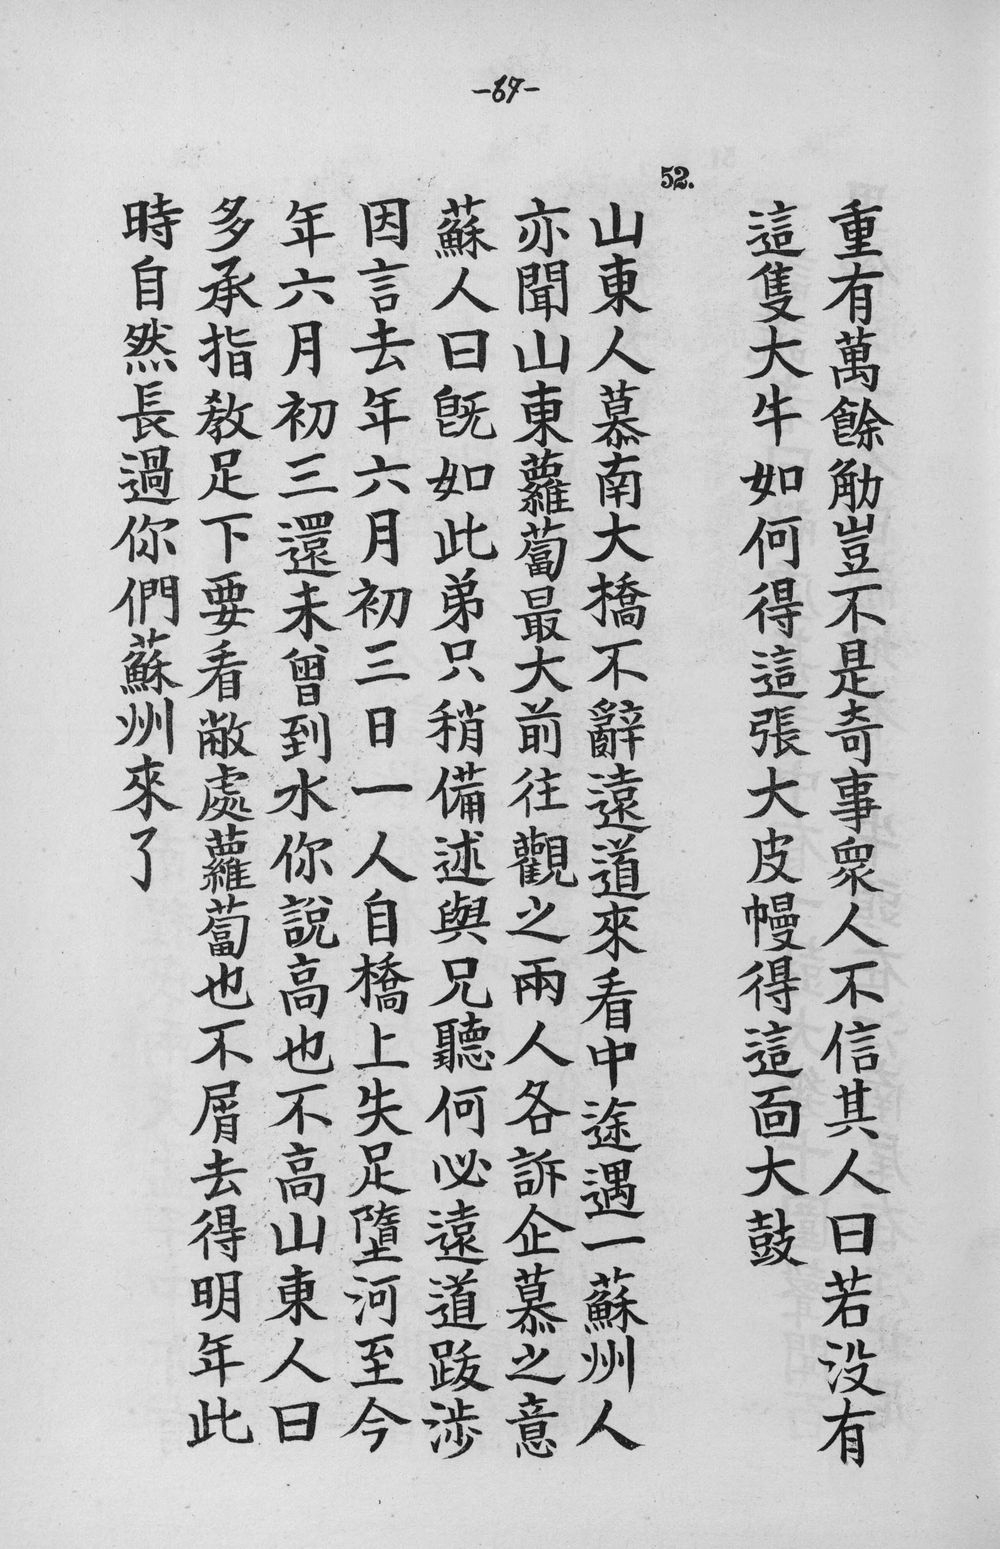 -67-
重有萬餘觔豈不是奇事衆人不信其人曰若没有
這隻大牛如何得這張大皮幔得這面大鼓
52.
山東人慕南大橋不辭遠道來看中途遇一蘇州人
亦聞山東蘿蔔最大前往觀之兩人各訴企慕之意
蘇人曰旣如此弟只稍備述與兄聽何必遠道跋涉
因言去年六月初三日一人自橋上失足墮河至今
年六月初三還未曾到水你說高也不高山東人曰
多承指敎足下要看敝處蘿蔔也不屑去得明年此
時自然長過你們蘇州來了